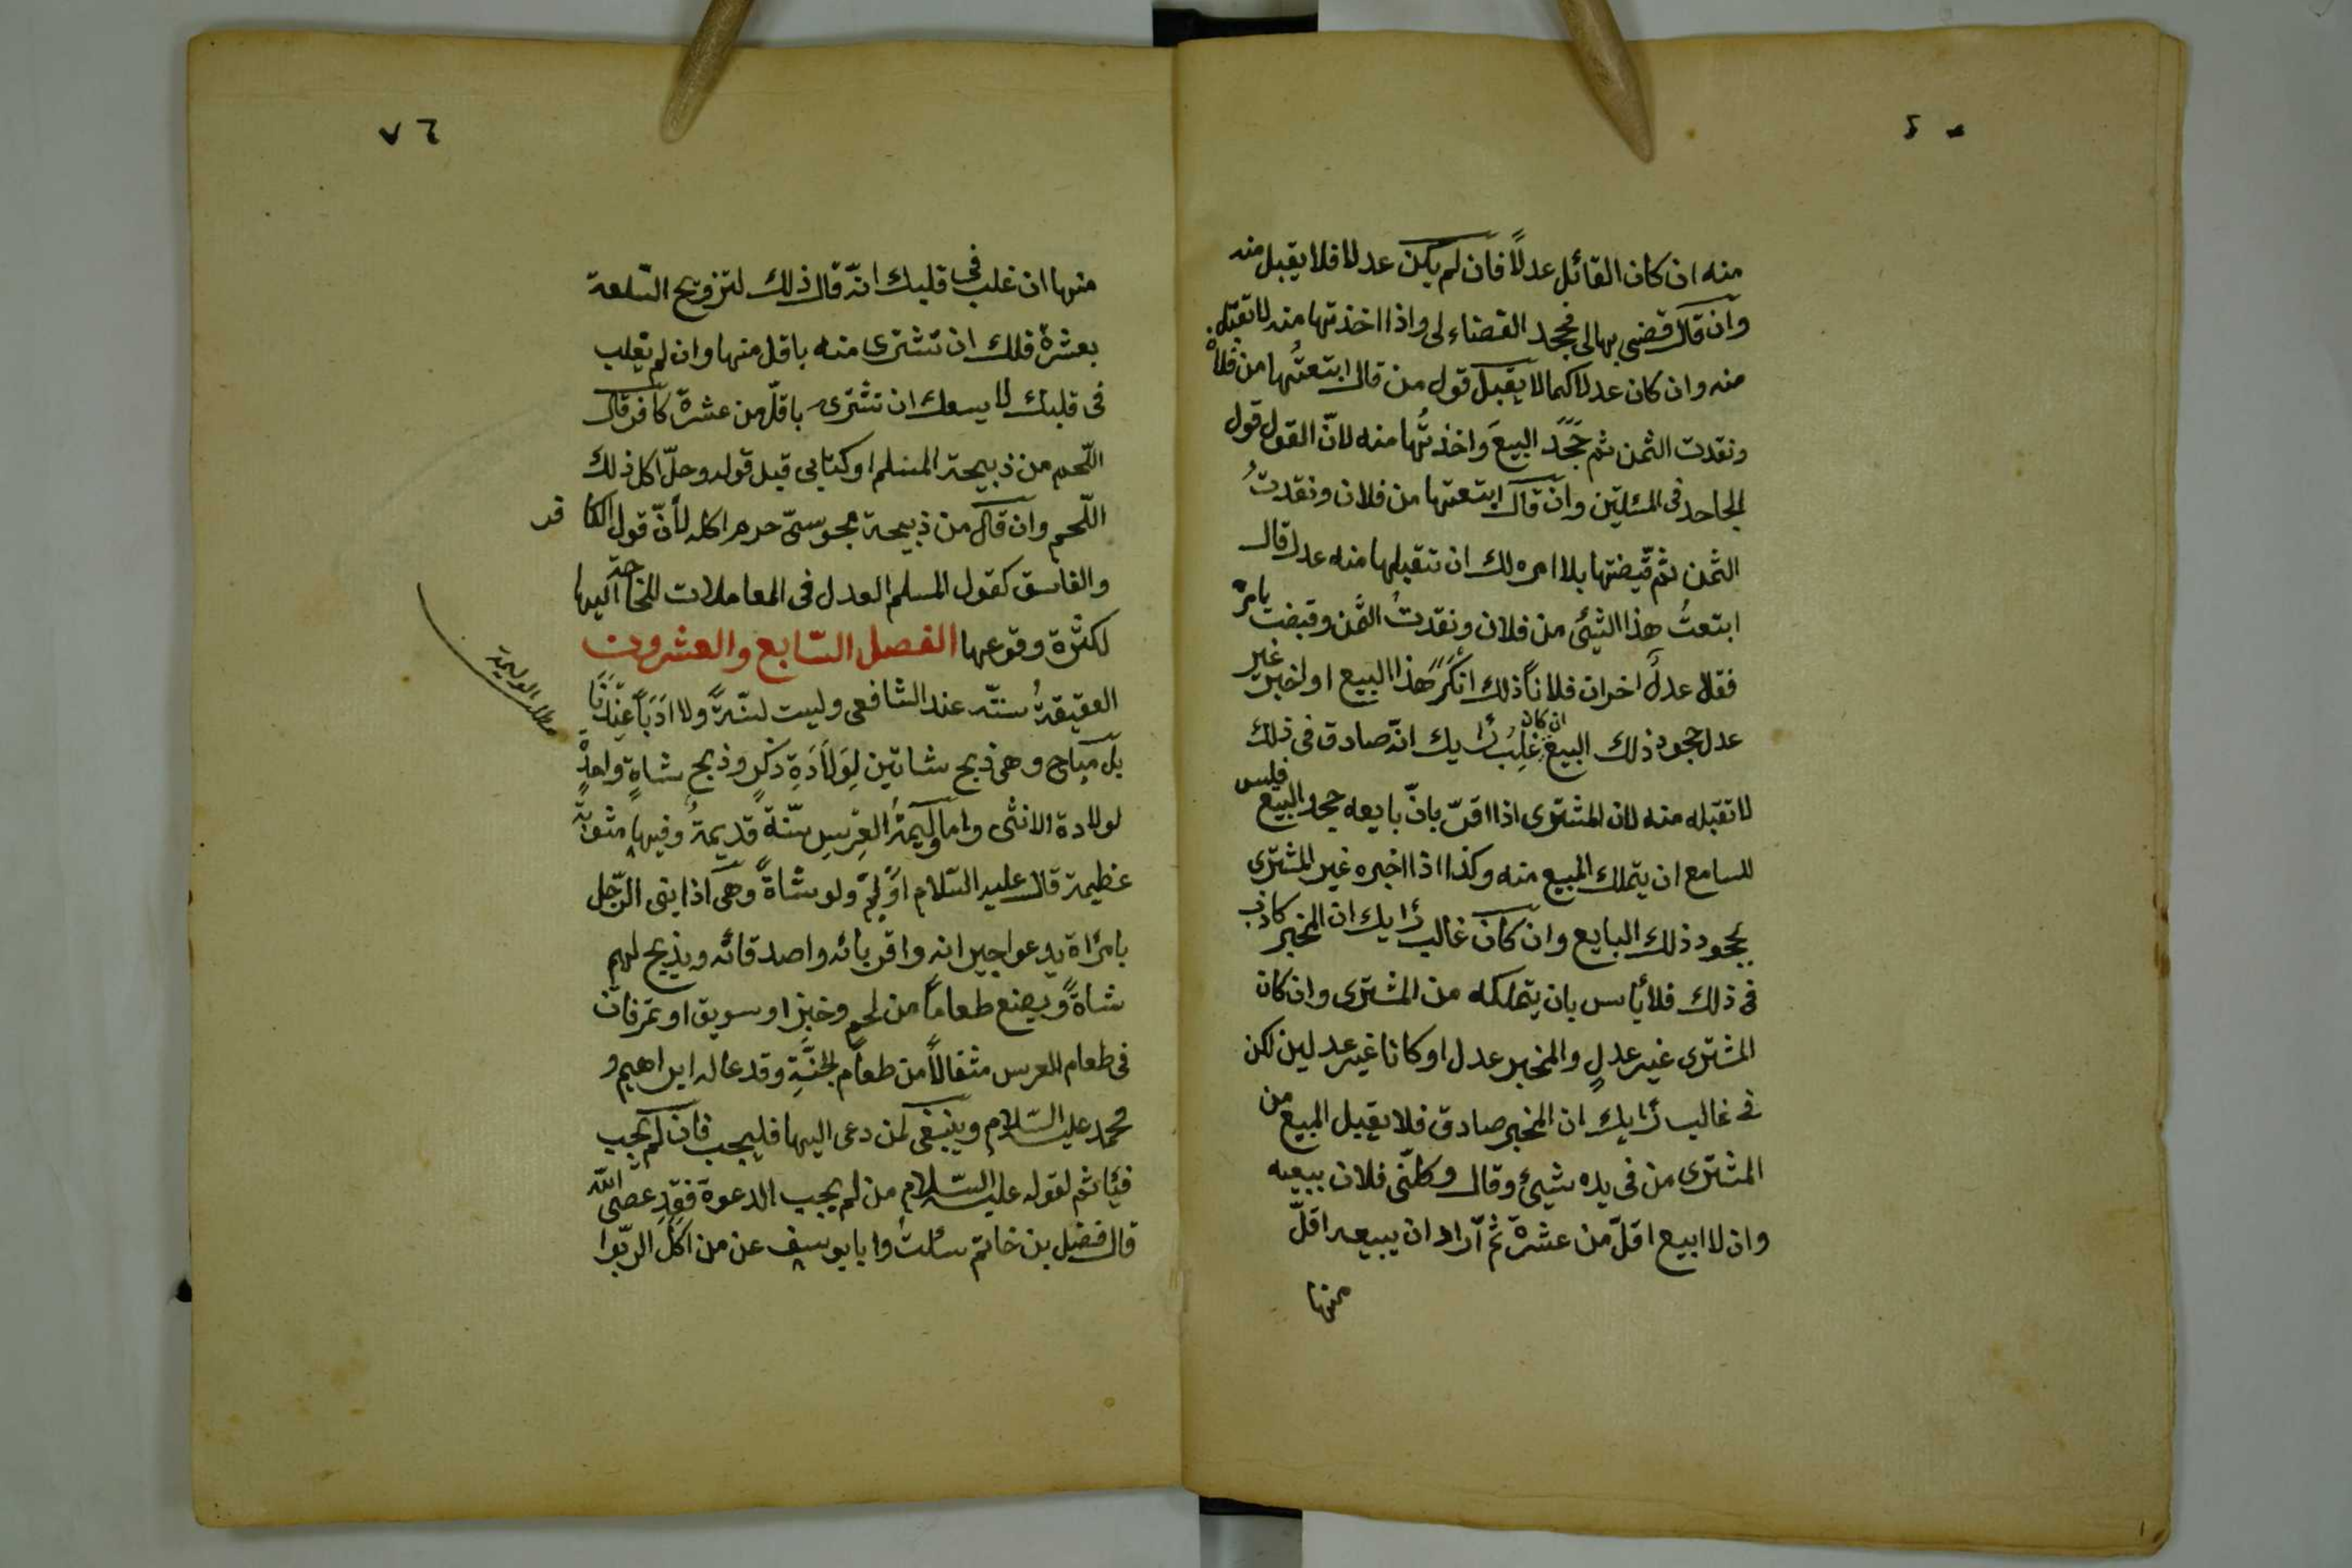 منه ان كان القائل عدلًا فان لم يكن عدلا فلا يقبل منه
وان قال قضى بها لى فجحد القضاء لى واذا اخذتها منه لا تقبل
منه وان كان عدلا كما لا يقبل قول من قال ابتعتُها من فلان
ونقدت الثمن ثم جَحَدَ البيعَ واخذتُها منه لانّ القول قول
الجاحد فى المسئلتين وان قال ابتعتها من فلان ونقدتُ
الثمن ثم قبضتها بلا امره لك ان تتقبلها منه عدل قال
ابتعتُ هذا الشئ من فلان ونقدتُ الثمن وقبضت بامره
فقال عدلٌ اخر ان فلاناً ذلك انكَرَ هذا البيع او اخبر غير
عدل جحود ذلك البيع ان كان غلب رأيك انه صادق فى ذلك
لا تقبله منه لان المشترى اذا اقرّ بانّ بايعه جحد البيع فليس
للسامع ان يتملك المبيع منه وكذا اذا اخبره غير المشترى
بجحود ذلك البايع وان كان غالب رأيك ان المخبر كاذب
فى ذلك فلا بأس بان يتملكه من المشترى وان كان
المشترى غير عدلٍ والمخبر عدل او كانا غير عدلين لكن
فى غالب رأيك ان المخبر صادق فلا يقبل المبيع من
المشترى من فى يده شيئ وقال وكلنى فلان ببيعه
وان لا ابيع اقلّ من عشرة ثم اراد ان يبيعه اقلّ
منها
٧٦
منها ان غلب فى قلبك انّه قال ذلك لتزويج السّلعة
بعشرة فلك ان تشترى منه باقل منها وان لم تغلب
فى قلبك لا يسعك ان تشترى باقلّ من عشرة كافر قال
اللّحم من ذبيحة المسلم او كتابى قبل قوله وحلّ اكل ذلك
اللّحم وان قال من ذبيحة مجوسىّ حرم اكله لأنّ قول الكافر
والفاسق كقول المسلم العدل فى المعاملات للحاجة اليها
لكثرة وقوعها الفصل السّابع والعشرون
العقيقةُ سنّة عند الشافعى وليست لسنّةً ولا ادَبَاً عِنْدَنَا
بل مباح وهى ذبح شاتين لِوَلَادَةِ ذكرٍ وذبح شاةٍ واحدٍ
لولادة الانثى واما وليمةُ العرس سنّة قديمةٌ وفيها مثوبة
عظيمة قال عليه السّلام اَوْلِمْ ولو شاةً وهى اذا بنى الرّجل
بامرأة يدعو جيرانه واقربائه واصدقائه ويذبح لهم
شاةً ويصنع طعاماً من لحم وخبز او سويق او تمر فان
فى طعام العرس مثقالًا من طعام الجنّةِ وقد دعا له ابراهيم و
محمد عليه السّلام وينبغى لمن دعى اليها فليجب فان لم يجب
فيأثم لقوله عليه السّلام من لم يجب الدعوة فقد عصى الله
قال فضيل بن خاتم سئلتُ وابا يوسف عن من اكَلَ الرّبوا